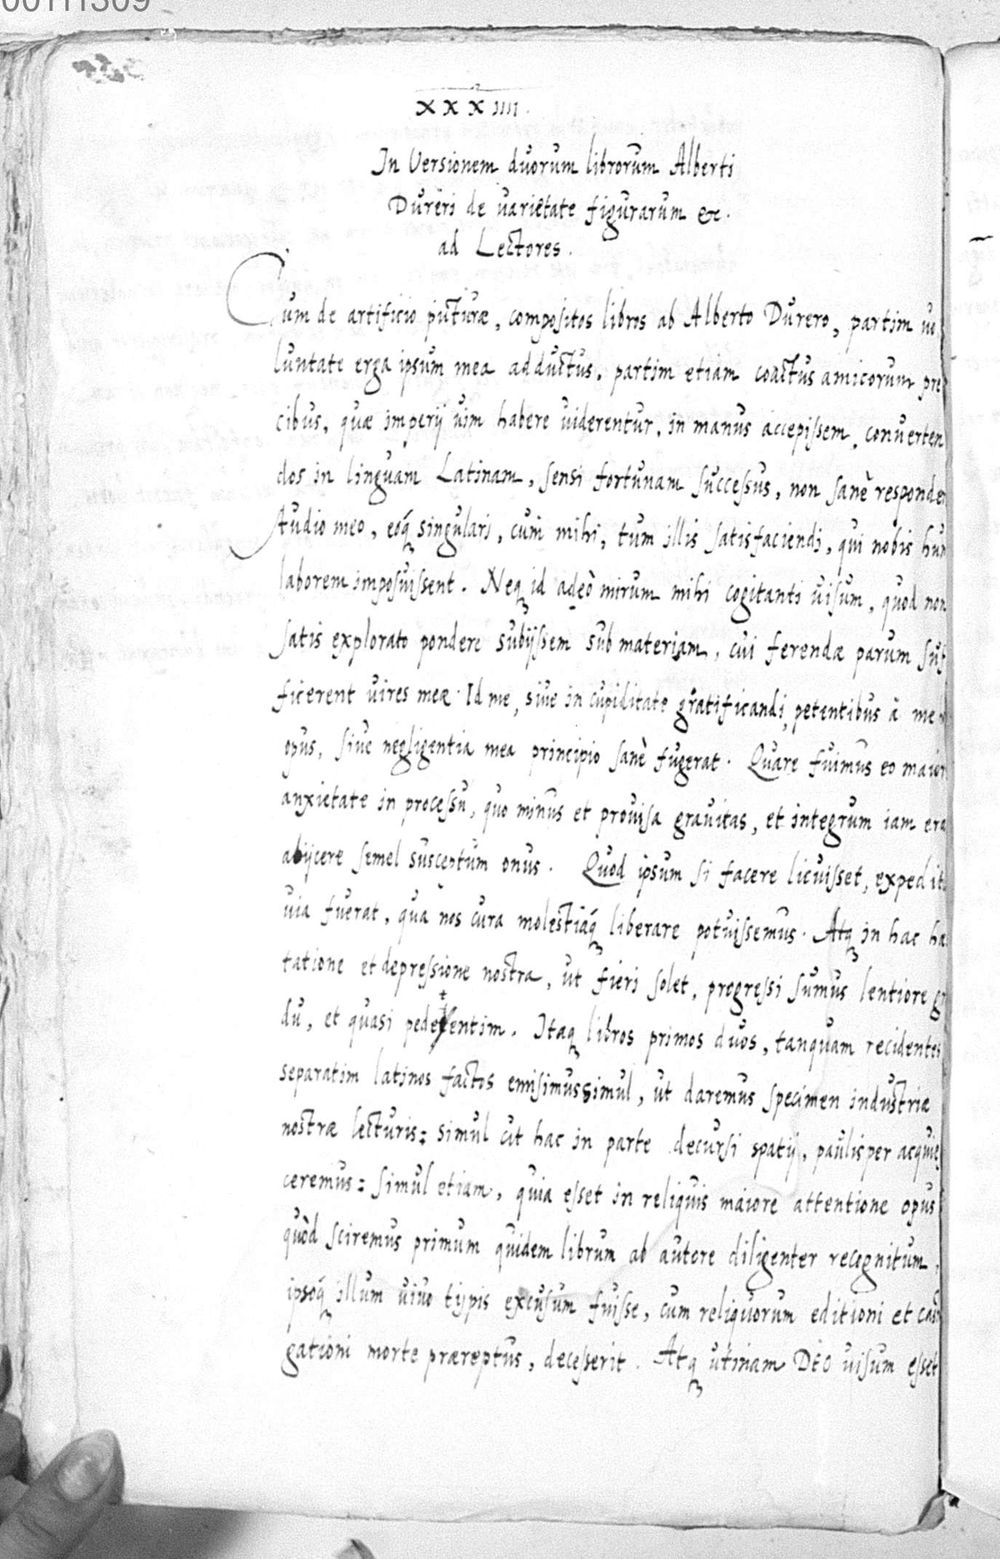 00111309
XXXIIII.
In Versionem duorum librorum Alberti
Dureri de uarietate figurarum &c.
ad Lectores.
Cum de artificio picturæ, compositos libros ab Alberto Durero, partim uo
luntate erga ipsum mea adductus, partim etiam coactus amicorum pre
cibus, quæ imperij uim habere uiderentur, in manus accepissem, conuerten
dos in linguam Latinam, sensi fortunam successus, non sanè responder
studio meo, eoq́ singulari, cum mihi, tum illis satisfaciendi, qui nobis hun
laborem imposuissent. Neq id adeò mirum mihi cogitanti uisum, quod non
satis explorato pondere subijssem sub materiam, cui ferendæ parum suf
ficerent uires meæ. Id me, siue in cupiditate gratificandi, petentibus à me
opus, siue negligentia mea principio sanè fugerat. Quare fuimus eo maior
anxietate in processu, quo minus et prouisa grauitas, et integrum iam era
abijcere semel susceptum onus. Quod ipsum si facere licuisset, expedit
uia fuerat, qua nos cura molestiaq́ liberare potuissemus. Atq in hac ha
tatione et depressione nostra, ut fieri solet, progressi sumus lentiore gr
du, et quasi pedetentim. Itaq libros primos duos, tanquam recidentes
separatim latinos factos emisimus simul, ut daremus specimen industriæ
nostræ lecturis: simul ut hac in parte decursi spatij, paulisper acquie
ceremus: simul etiam, quia esset in reliquis maiore attentione opus
quòd sciremus primum quidem librum ab autore diligenter recognitum,
ipsoq́ illum uiuo typis excusum fuisse, cum reliquorum editioni et cas
gationi morte præreptus, decesserit. Atq utinam DEO uisum esset